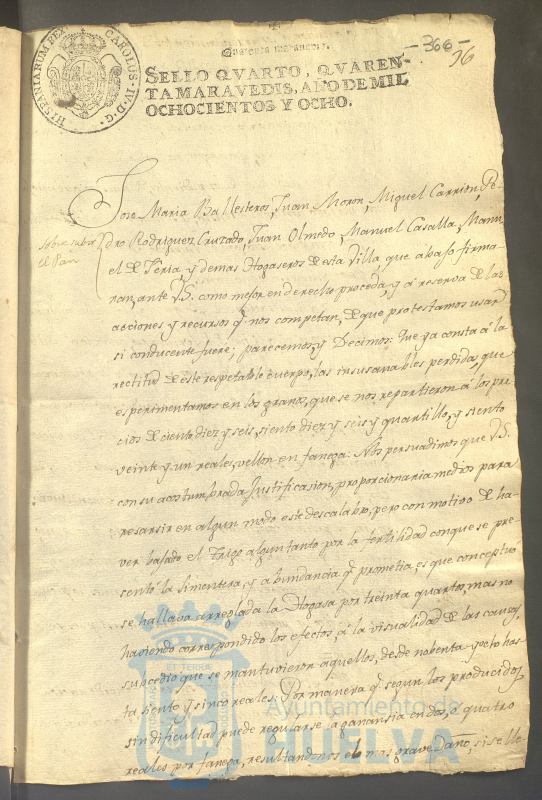 HISPANIARUM REX CAROLUS · IV · D · G ·
Quarenta maravedis.
-366-
96
SELLO QVARTO, QVAREN-
TA MARAVEDIS, AÑO DE MIL
OCHOCIENTOS Y OCHO.
Jose Maria Ballesteros, Juan Moron, Miguel Carrion, Pe-
sobre subir
el Pan
dro Rodriguez Cruzado, Juan Olmedo, Manuel Casalla, Manu
el de Feria, y demas Hogaseros de esta Villa que abajo firma
ran, ante V.S. como mejor en derecho proceda, y á reserva de las
acciones y recursos q.e nos competan, de que protestamos usar
si conducente fuere; parecemos, y Decimos: Que ya consta á la
rectitud de este respetable Cuerpo, las insusanables perdidas, que
esperimentamos en los granos, que se nos repartieron á los pre
cios de ciento diez y seis, siento diez y seis y quartillo, y siento
veinte y un reales vellon en fanega: Nos persuadimos que V.S.
con su acostumbrada Justificasion, proporcionaria medios para
resarsir en algun modo este descalabro, pero con motivo de ha-
ver bajado el Trigo algun tanto por la fertilidad con que se pre-
sentó la Simentera, y abundancia q.e prometia, es que conceptuó
se hallava arreglada la Hogasa por treinta quartos, mas no
haviendo correspondido los efectos, á la visualidad de las causas,
subcedio que se mantuvieron aquellos, desde nobenta y ocho has-
ta siento y sinco reales: Por manera q.e segun los producidos
sin dificultad puede regularse la ganansia en dos, ó quatro
reales por fanega, resultandonos el mas grave Daño, si se lle
Ayuntamiento de
HUELVA